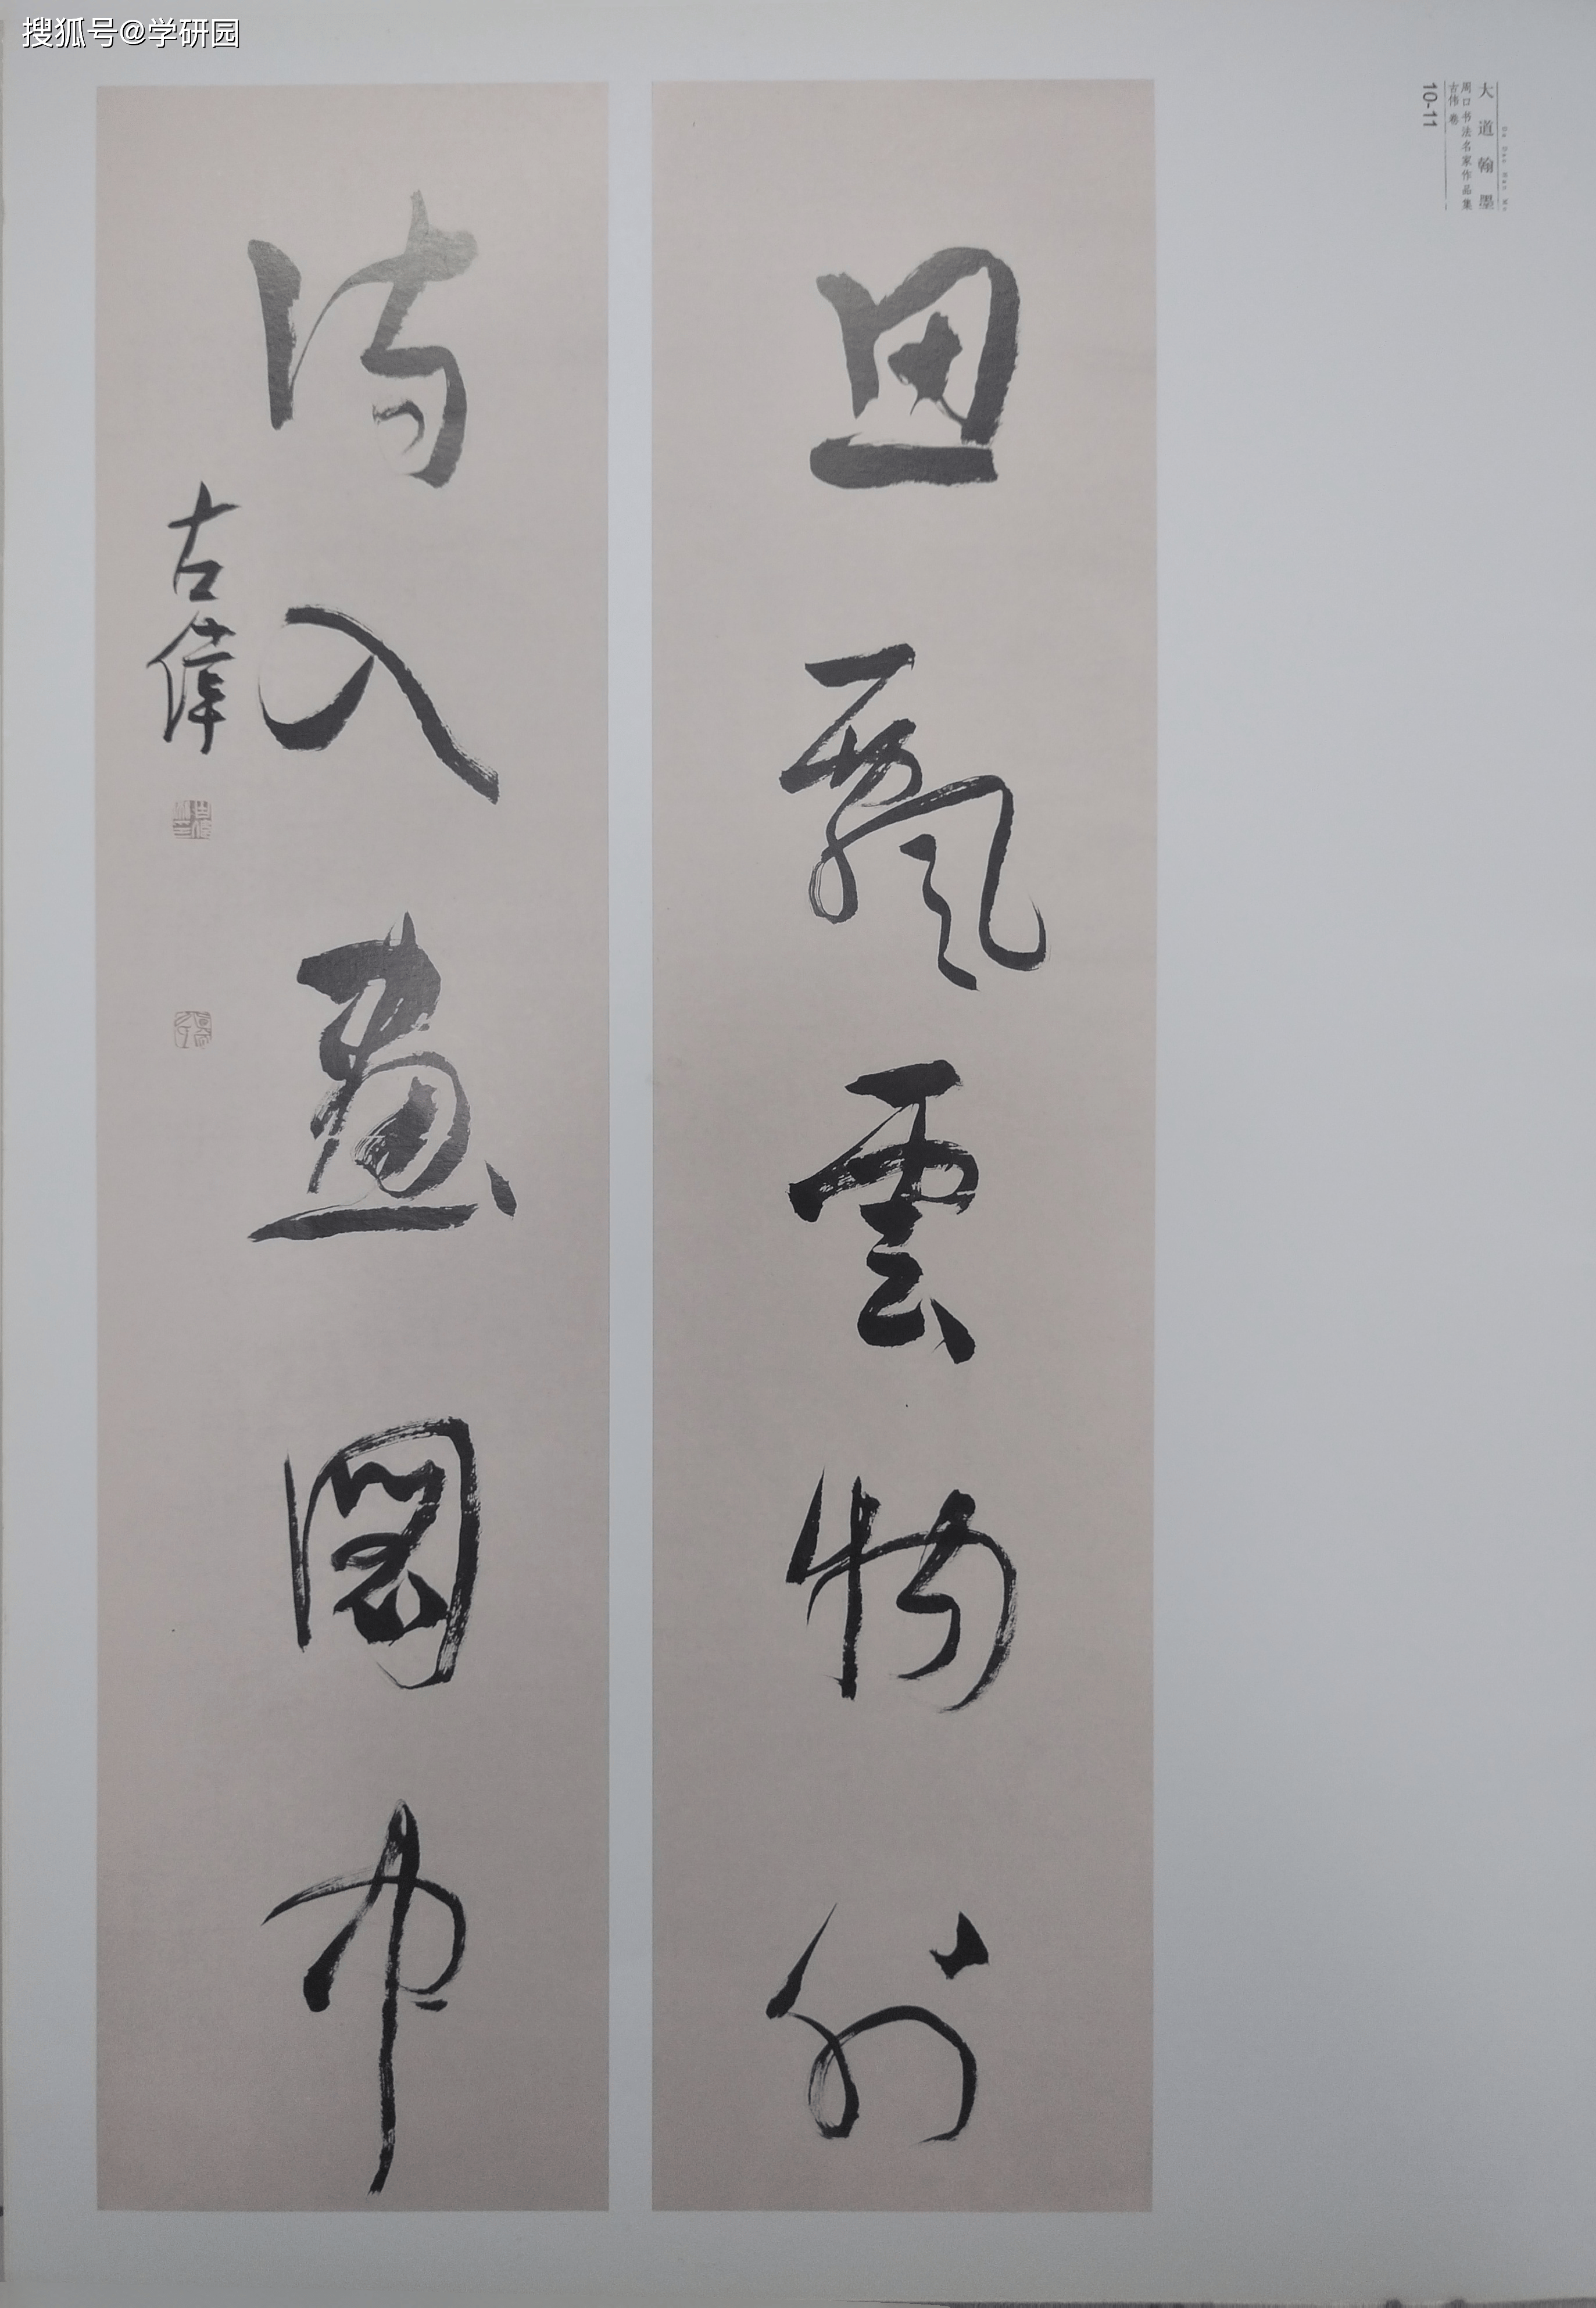 搜狐号@学研园
大道翰墨
Da Dao Han Mo
周口书法名家作品集
古伟卷
10-11
思飘雲物外
诗入画图中
古偉